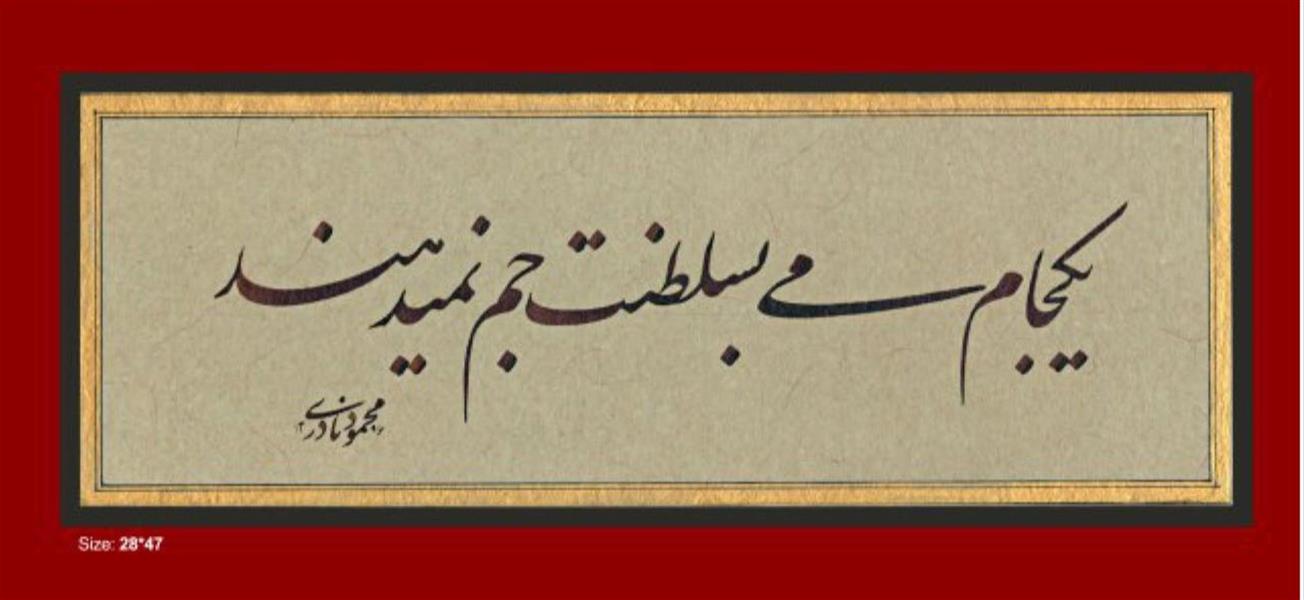 یکجام می بسلطنت جم نمیدهند
محمود نادری
Size: 28*47